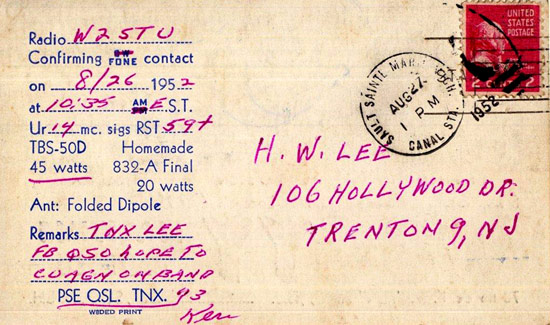 Radio W2STU
Confirming FONE contact
on 8/26 1952
at 10:35 AM E.S.T.
Ur 14 mc. sigs RST 59+
TBS-50D Homemade
45 watts 832-A Final
20 watts
Ant: Folded Dipole
Remarks TNX LEE
FB QSO HOPE TO
CUAGN OM BAND
PSE QSL. TNX. 73
Ken
WEDED PRINT
SAULT SAINTE MICH.
AUG 27
1 PM
1952
CANAL STA.
UNITED
STATES
POSTAGE
H. W. LEE
106 HOLLYWOOD DR.
TRENTON 9, NJ